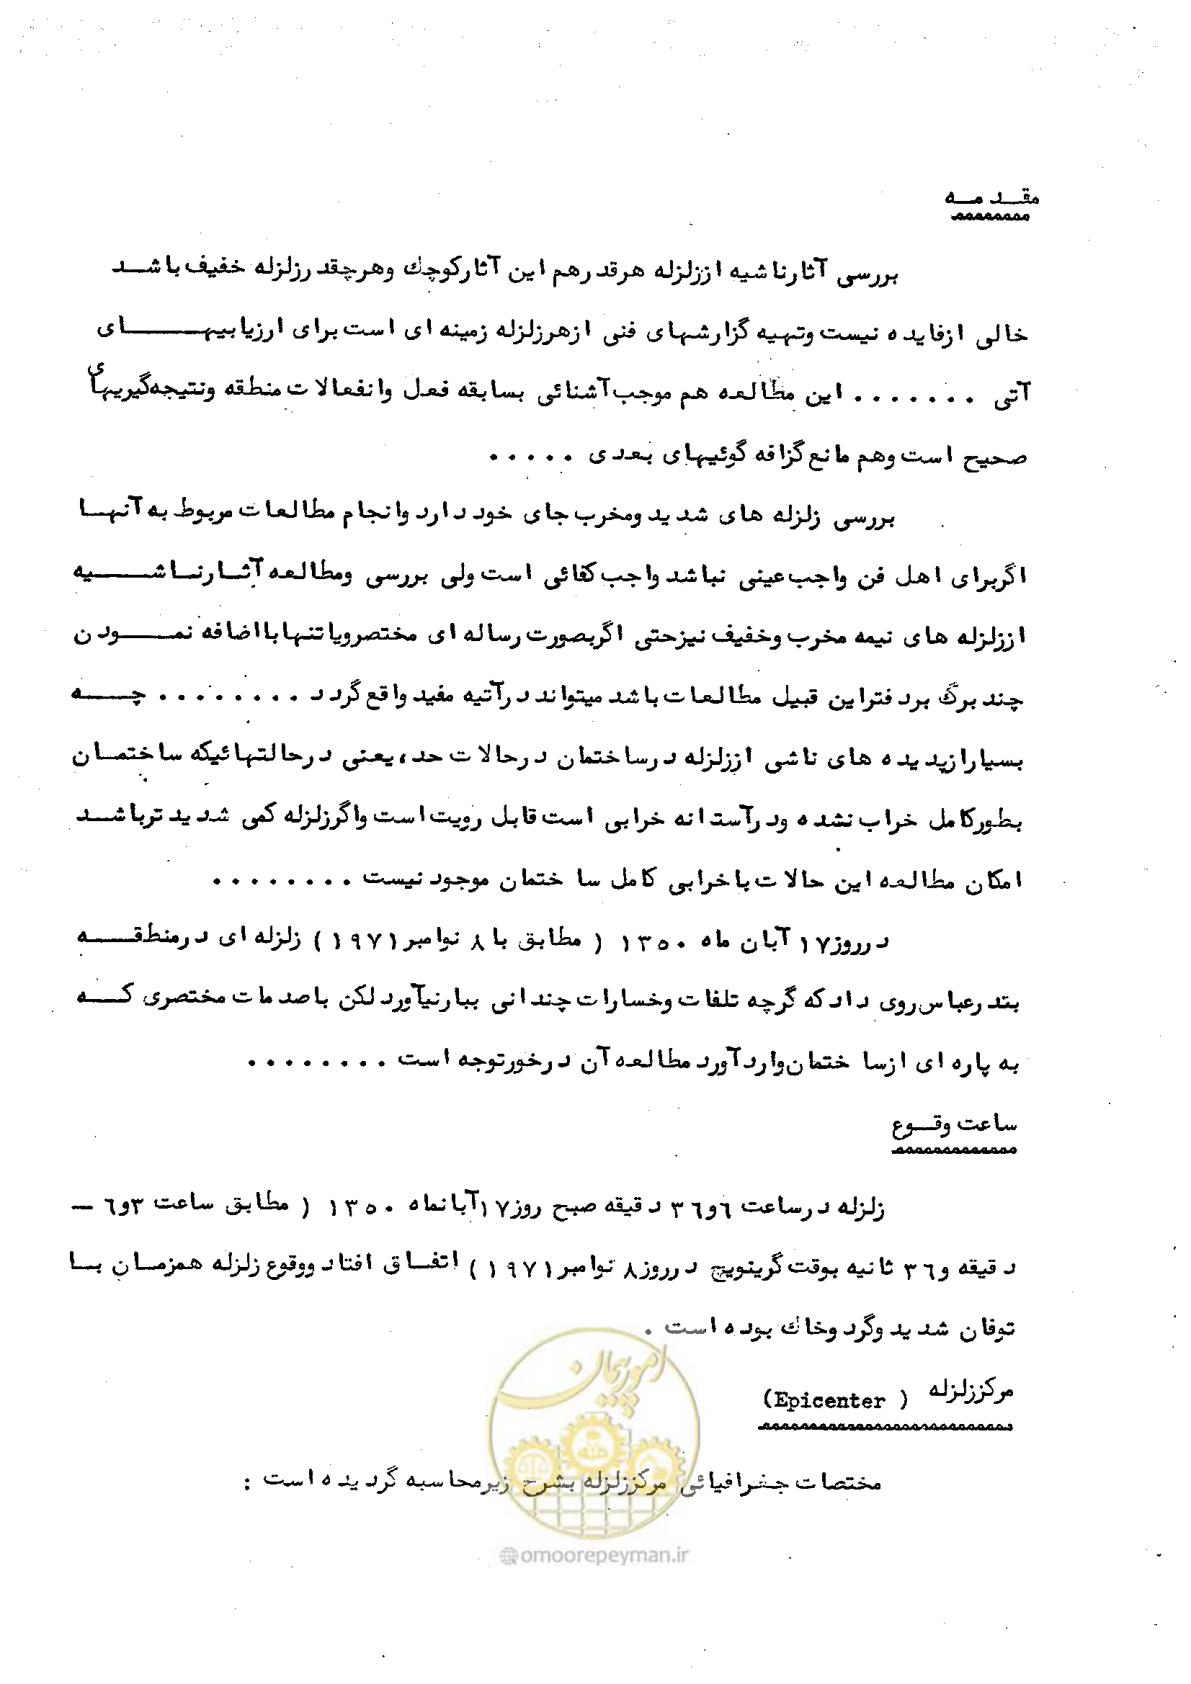 مقدمه
بررسی آثار ناشیه از زلزله هر قدر هم این آثار کوچك و هر چقدر زلزله خفیف باشد
خالی از فایده نیست و تهیه گزارشهای فنی از هر زلزله زمینه ای است برای ارزیابیهای
آتی ....... این مطالعه هم موجب آشنائی بسابقه فعل و انفعالات منطقه و نتیجه‌گیریهای
صحیح است و هم مانع گزافه گوئیهای بعدی .....
بررسی زلزله های شدید و مخرب جای خود دارد و انجام مطالعات مربوط به آنها
اگر برای اهل فن واجب عینی نباشد واجب کفائی است ولی بررسی و مطالعه آثار ناشیه
از زلزله های نیمه مخرب و خفیف نیز حتی اگر بصورت رساله ای مختصر و یا تنها با اضافه نمودن
چند برگ بر دفتر این قبیل مطالعات باشد میتواند در آتیه مفید واقع گردد ........ چه
بسیار از پدیده های ناشی از زلزله در ساختمان در حالات حد، یعنی در حالتهائیکه ساختمان
بطور کامل خراب نشده و در آستانه خرابی است قابل رویت است و اگر زلزله کمی شدید تر باشد
امکان مطالعه این حالات با خرابی کامل ساختمان موجود نیست ........
در روز ۱۷ آبان ماه ۱۳۵۰ ( مطابق با ۸ نوامبر ۱۹۷۱ ) زلزله ای در منطقه
بندرعباس روی داد که گرچه تلفات و خسارات چندانی ببار نیآورد لکن با صدمات مختصری که
به پاره ای از ساختمان وارد آورد مطالعه آن در خور توجه است ........
ساعت وقوع
زلزله در ساعت ۶ و ۳۶ دقیقه صبح روز ۱۷ آبانماه ۱۳۵۰ ( مطابق ساعت ۳ و ۶ -
دقیقه و ۳۶ ثانیه بوقت گرینویچ در روز ۸ نوامبر ۱۹۷۱ ) اتفاق افتاد و وقوع زلزله همزمان با
توفان شدید و گرد و خاك بوده است .
مرکز زلزله ( Epicenter)
مختصات جغرافیائی مرکز زلزله بشرح زیر محاسبه گردیده است :
امور پیمان
@omoorepeyman.ir